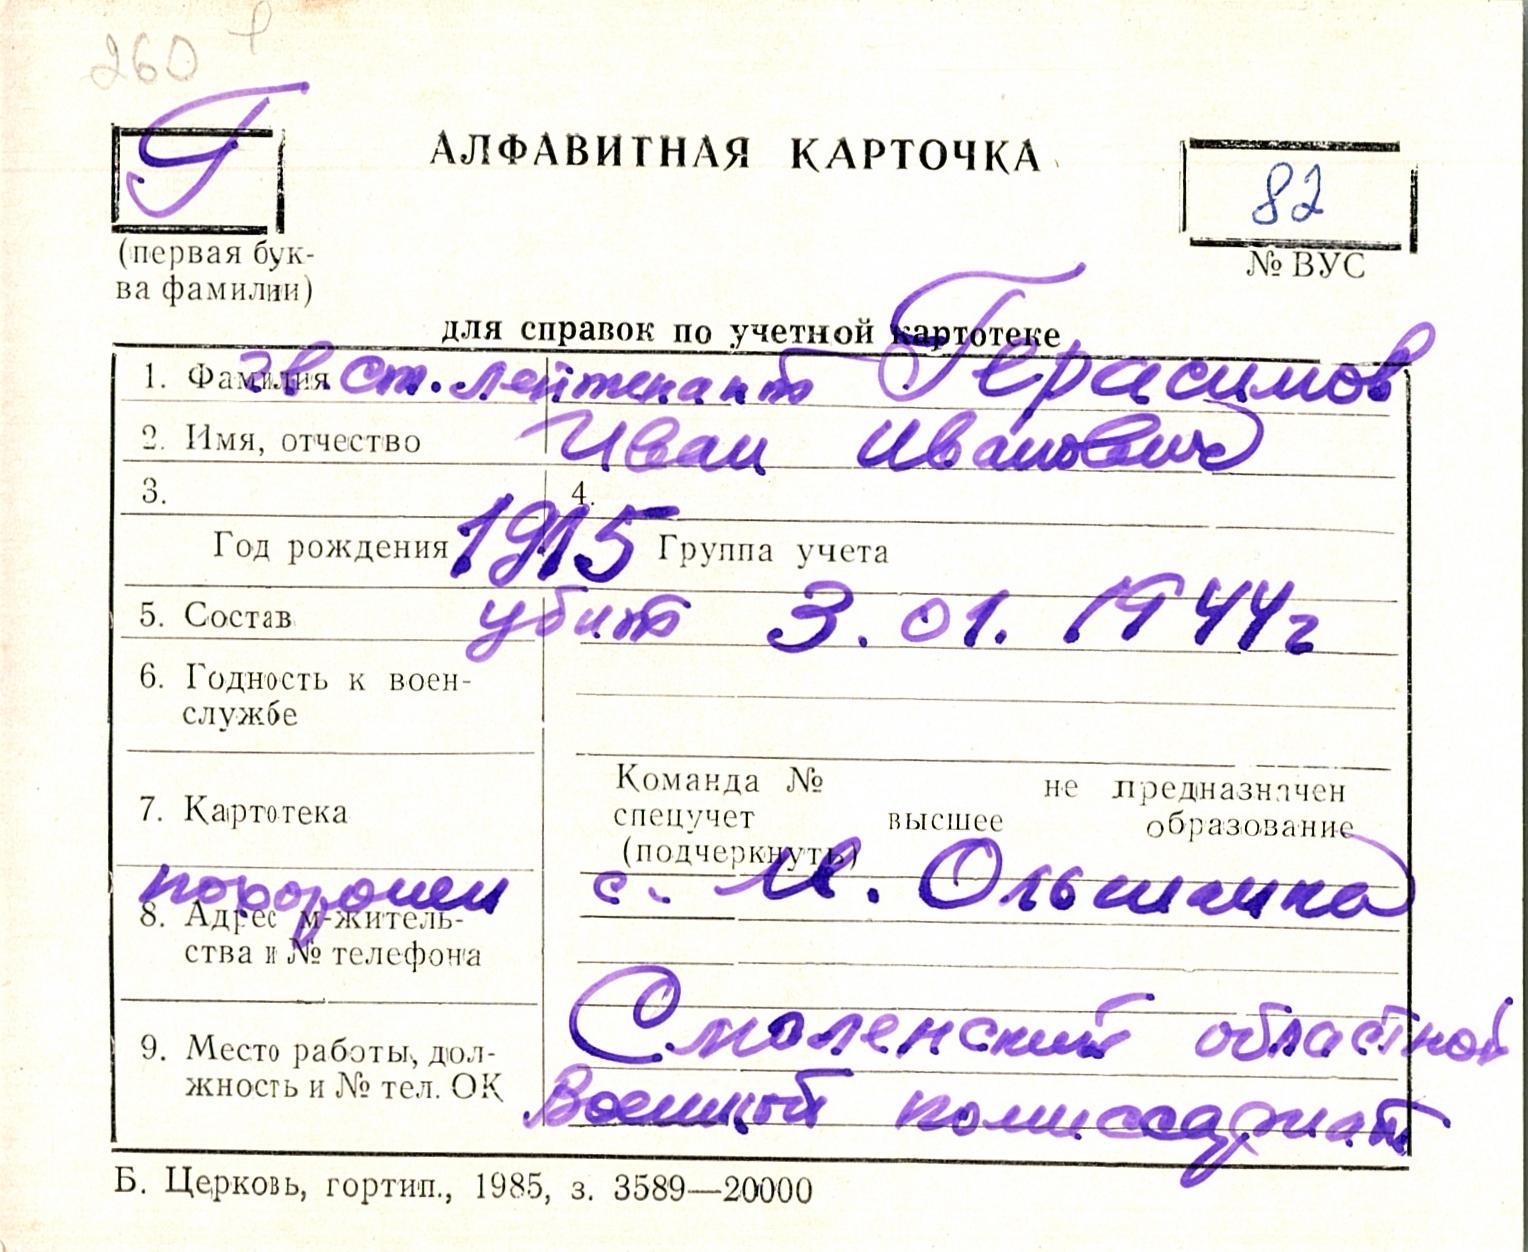 260
Г
АЛФАВИТНАЯ КАРТОЧКА
82
(первая бук-
ва фамилии)
№ ВУС
для справок по учетной картотеке
1. Фамилия гв. ст. лейтенант Герасимов
2. Имя, отчество Иван Иванович
3. 4.
Год рождения 1915 Группа учета
5. Состав убит 3.01.1944г
6. Годность к воен-
службе
Команда № не предназначен
7. Картотека спецучет высшее образование
(подчеркнуть)
похоронен с. М. Ольшанка
8. Адрес м-житель-
ства и № телефона
Смоленский областной
9. Место работы, дол-
жность и № тел. ОК
военный комиссариат
Б. Церковь, гортип., 1985, з. 3589—20000